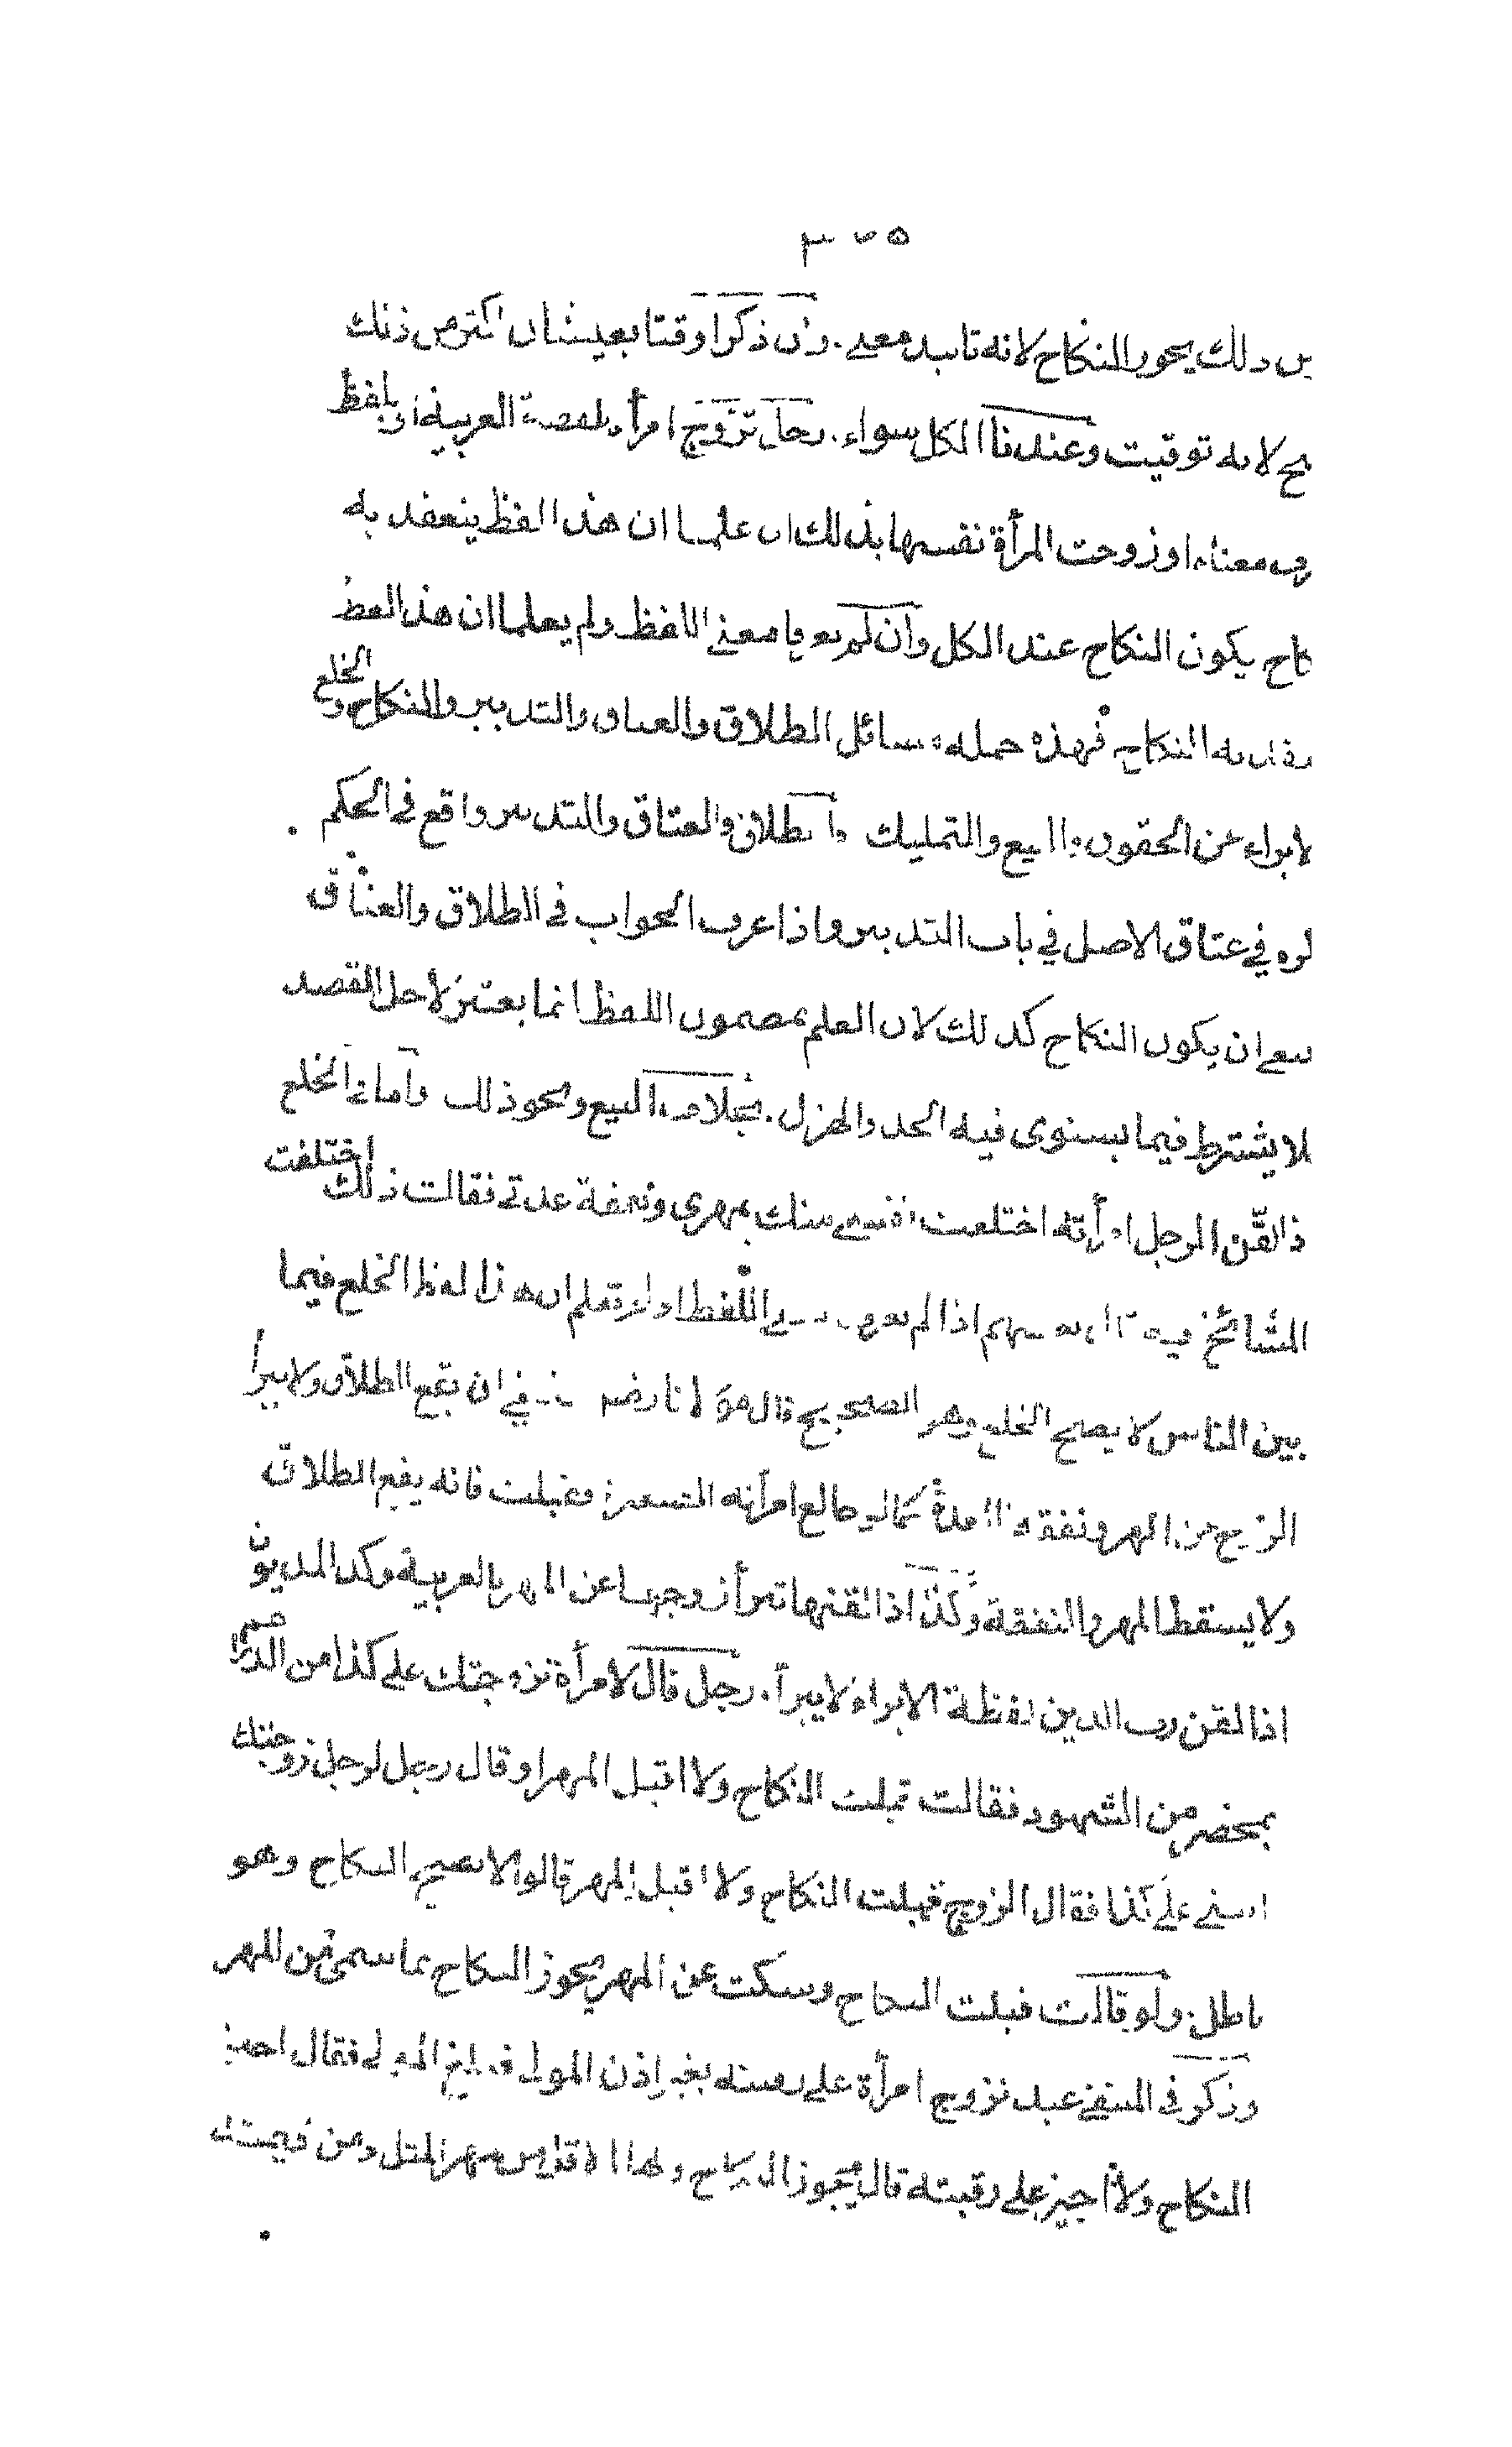 من ذلك يجوز النكاح لانه تابيد معنى . وان ذكرا وقتا يعيشان اكثر من ذلك
يح لانه توقيت وعندنا الكل سواء . رجل تزوج امرأة بلفظة العربية اى بلفظ
معناه او زوجت المرأة نفسها بذلك ان علما ان هذا اللفظ ينعقد به
كاح يكون النكاح عند الكل وان لم يعرفا معنى اللفظ ولم يعلما ان هذا اللفظ
به النكاح فهذه جملة مسائل الطلاق والعتاق والتدبير والنكاح والخلع
لابراء عن الحقوق والبيع والتمليك والطلاق والعتاق والتدبير واقع فى الحكم
كره في عتاق الاصل في باب التدبير واذا عرف الجواب فى الطلاق والعتاق
ينبغى ان يكون النكاح كذلك لان العلم بمضمون اللفظ انما يعتبر لاجل القصد
لا يشترط فيما يستوى فيه الجد والهزل . بخلاف البيع ونحو ذلك واما فى الخلع
ذا لقّن الرجل امرأته اختلعت نفسى منك بمهرى ونفقة عدتى فقالت ذلك اختلفت
المشائخ فيه قال بعضهم اذا لم تعرف اللفظ ولم تعلم ان هذا لفظ الخلع فيما
بين الناس لا يصح الخلع وهو الصحيح قال مولانا رضـ ينبغي ان يقع الطلاق ولا يبرأ
الزوج من المهر ونفقة العدة كما لو خالع امرأته الصغيرة وقبلت فانه يقع الطلاق
ولا يسقط المهر والنفقة وكذا اذا لقنها تبرأ زوجها عن المهر بالعربية وكذا المديون
اذا لقن رب الدين لفظة الابراء لا يبرأ . رجل قال لامرأة تزوجتك على كذا من الدراهم
بمحضر من الشهود فقالت قبلت النكاح ولا اقبل المهر او قال رجل لرجل زوجتك
ابنتى على كذا فقال الزوج قبلت النكاح ولا اقبل المهر قالوا لا يصح النكاح وهو
باطل . ولو قالت قبلت النكاح وسكتت عن المهر يجوز النكاح بما سمى من المهر
وذكر فى المنتقى عبد تزوج امرأة على رقبته بغير اذن المولى فبلغ المولى فقال اجيز
النكاح ولا اجيز على رقبته قال يجوز النكاح ولها الاقل من مهر المثل ومن قيمته